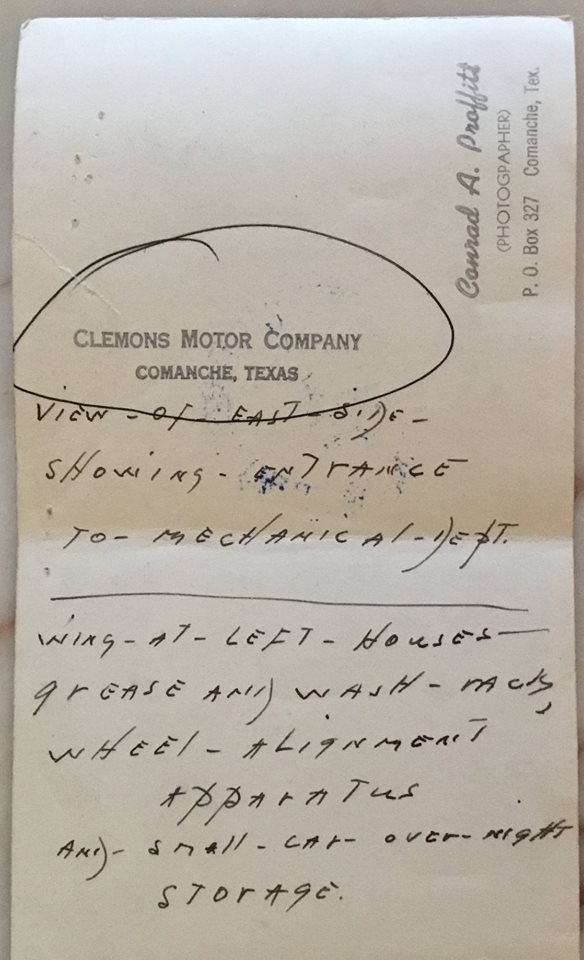 Conrad A. Proffitt
(PHOTOGRAPHER)
P. O. Box 327 Comanche, Tex.
CLEMONS MOTOR COMPANY
COMANCHE, TEXAS
VIEW - OF - EAST - SIDE -
SHOWING - ENTRANCE
TO - MECHANICAL - DEPT.
WING - AT - LEFT - HOUSES -
GREASE AND WASH - RACKS,
WHEEL - ALIGNMENT
APPARATUS
AND - SMALL - CAR - OVER - NIGHT
STORAGE.